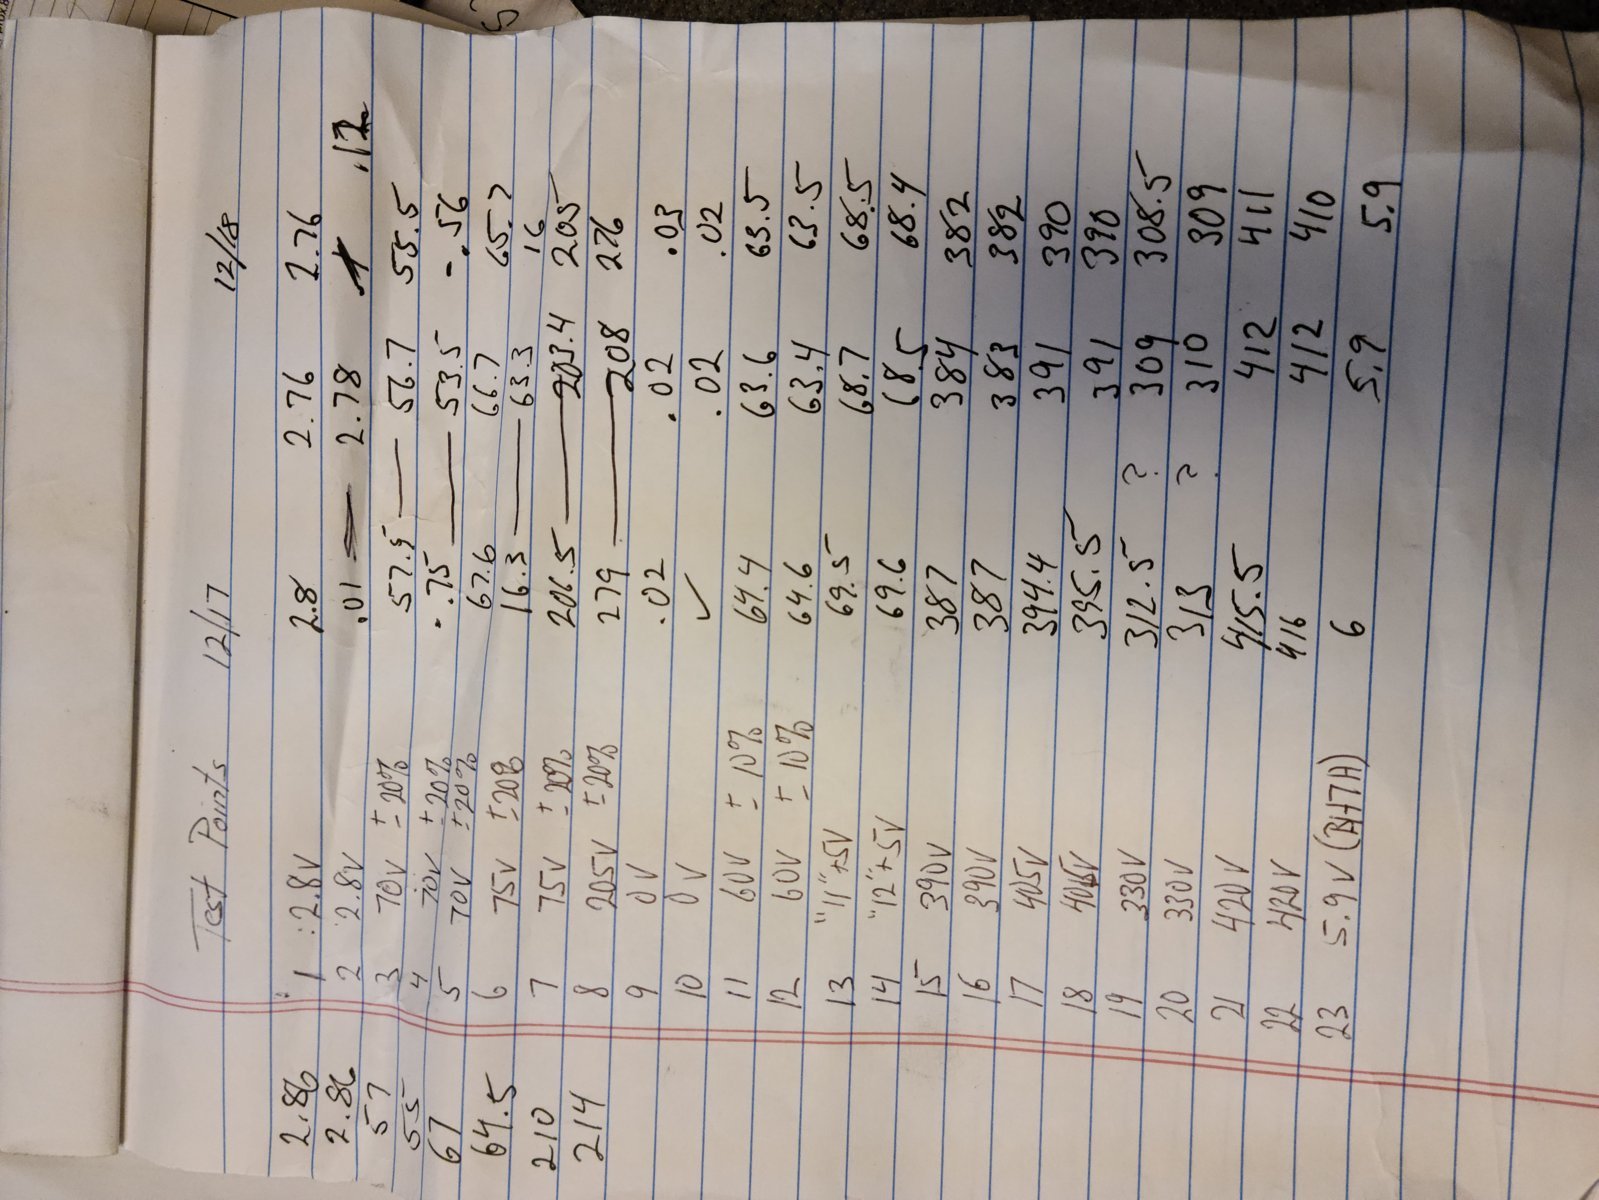 Test Points 12/17 12/18
2.86 1 : 2.8V 2.8 2.76 2.76
2.86 2 2.8V .01 — 2.78 .12
57 3 70V ± 20% 57.5 — 56.7 55.5
55 4 70V ± 20% -.75 — 53.5 -.56
67 5 70V ± 20% 67.6 66.7 65.7
64.5 6 75V ± 20% 16.3 — 63.3 16
210 7 75V ± 20% 206.5 — 203.4 205
214 8 205V ± 20% 279 — 208 276
9 0V .02 .02 .03
10 0V ✓ .02 .02
11 60V ± 10% 64.4 63.6 63.5
12 60V ± 10% 64.6 63.4 63.5
13 "11"+5V 69.5 68.7 68.5
14 "12"+5V 69.6 68.5 68.4
15 390V 387 384 382
16 390V 387 383 382
17 405V 394.4 391 390
18 405V 395.5 391 390
19 330V 312.5 ? 309 308.5
20 330V 313 ? 310 309
21 420V 415.5 412 411
22 420V 416 412 410
23 5.9V (BH7A) 6 5.9 5.9